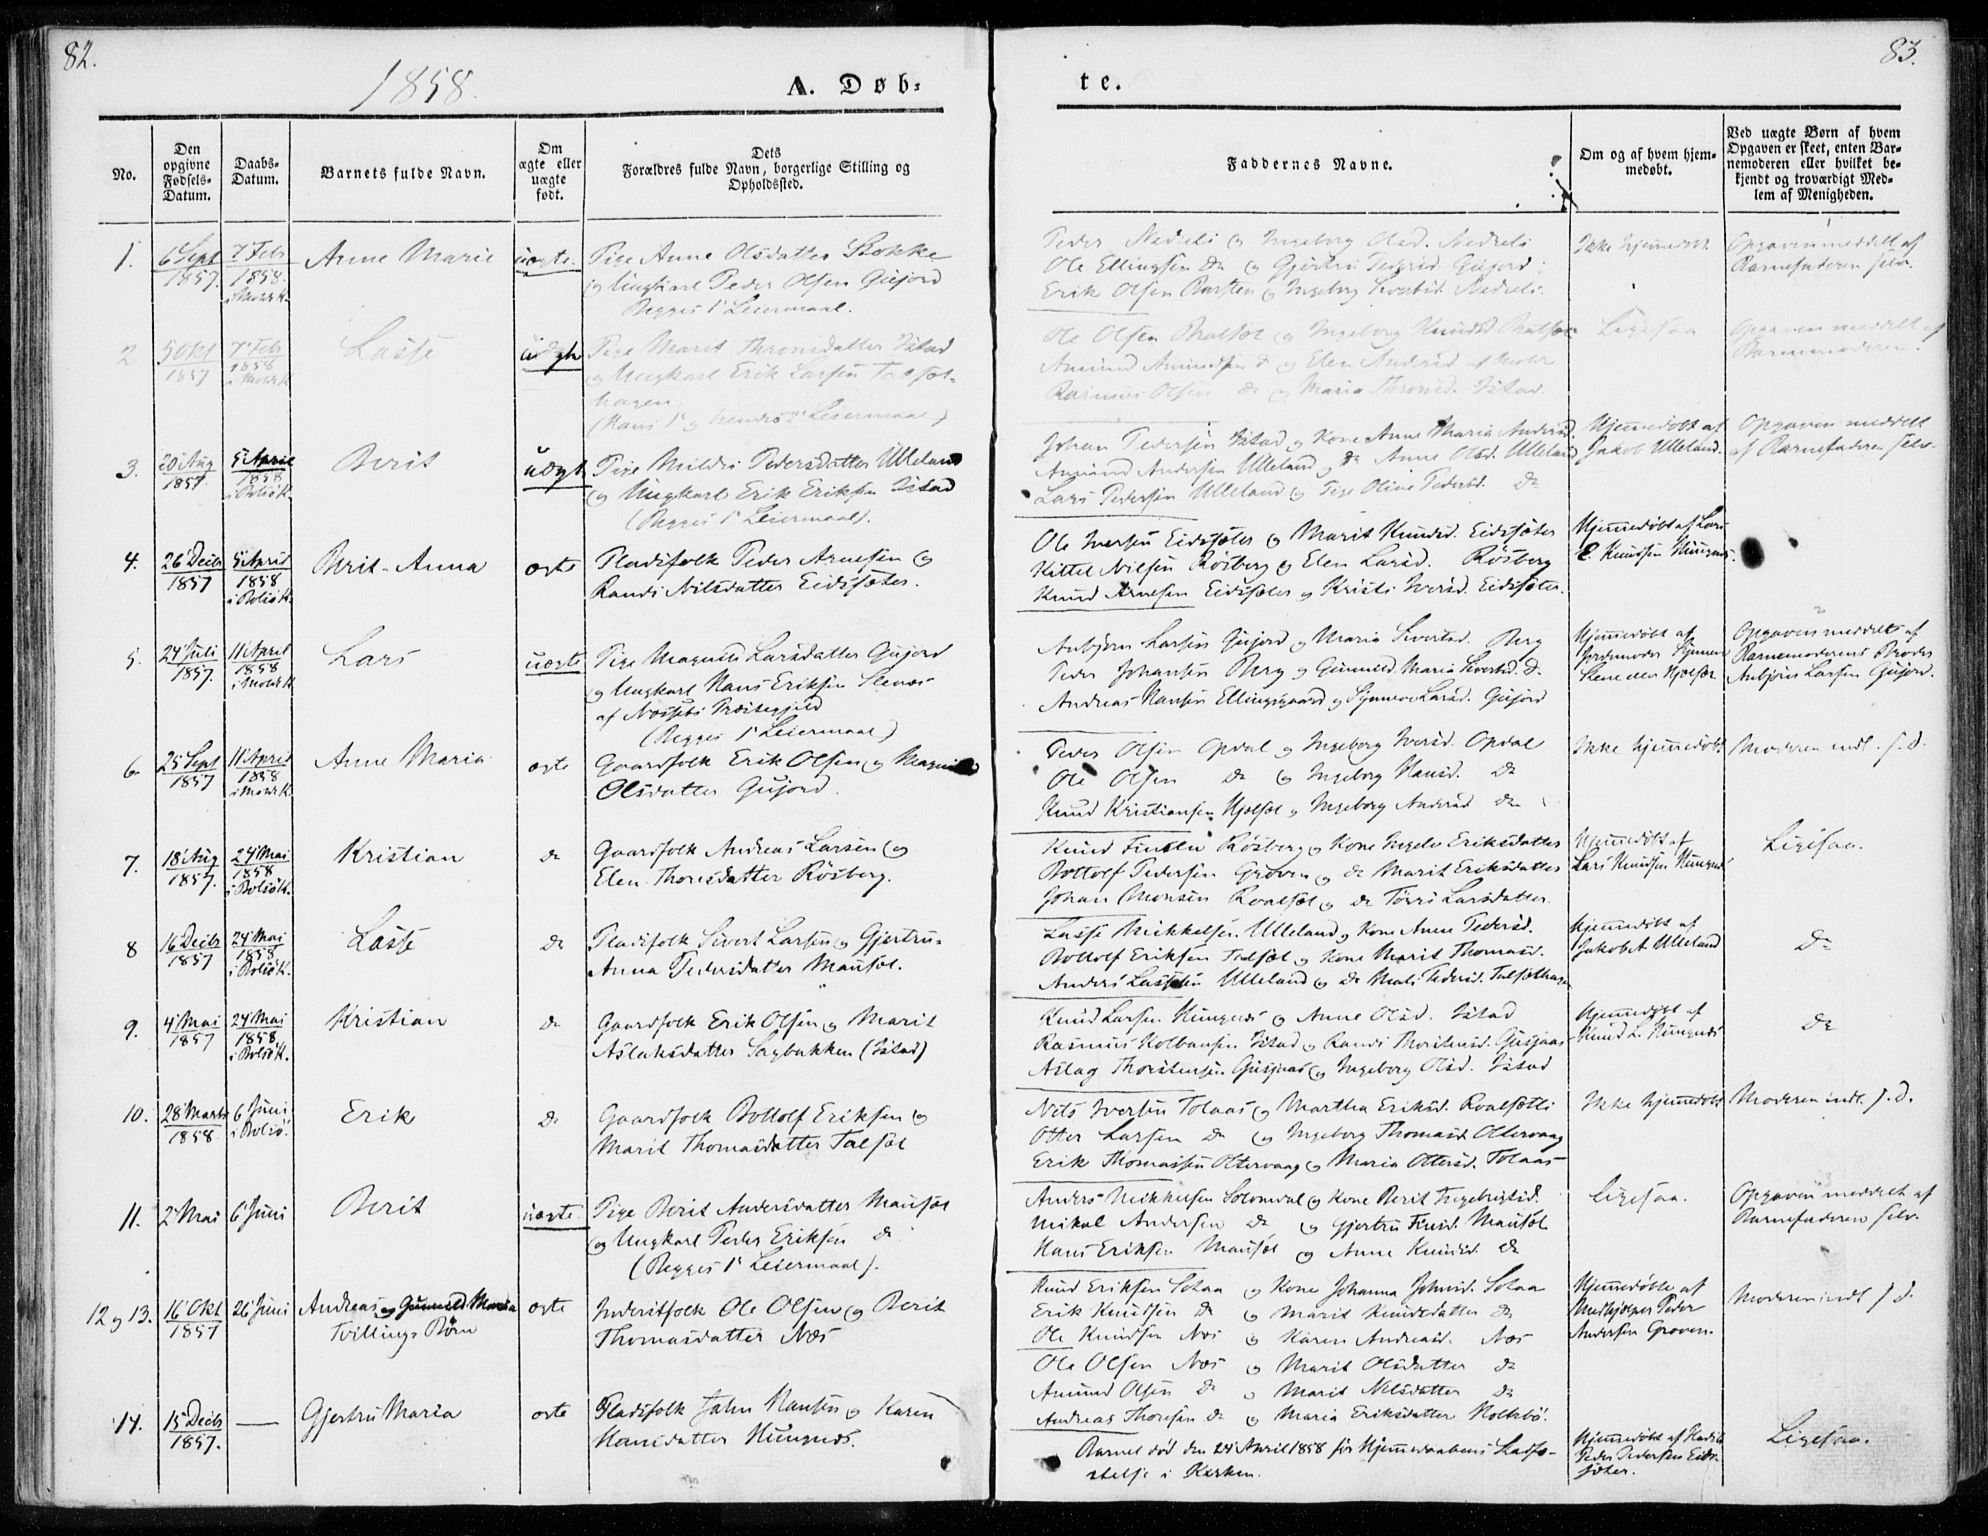 82.
83.
1858.
A. Døb-
te.
No.
Den opgivne Fødsels-Datum.
Daabs-Datum.
Barnets fulde Navn.
Om ægte eller uægte født.
Dets Forældres fulde Navn, borgerlige Stilling og Opholdssted.
Faddernes Navne.
Om og af hvem hjem-medøbt.
Ved uægte Børn af hvem Opgaven er skeet, enten Bar-nemoderen eller hvilket be-kjendt og troværdigt Med-lem af Menigheden.
1. 6 Sept 1857. 7 Febr 1858. i Molde K. Anne Marie uægte.
Pige Anne Olsdatter Stokke
og Ungkarl Peder Olsen Gujord
Begges 1ste Leiermaal.
Peder Nedreli og Ingeborg Olsd. Nedreli
Ole Ellingsen do og Gjertru Pedersd. Gujord
Erik Olsen og Ingeborg Sivertsd. Nedreli.
Ikke hjemmedøbt.
Opgaven meddelt af
Barnefaderen selv.
2 5 Okt 1857 7 Febr 1858 i Molde K. Lasse uægte
Pige Marit Thronsdatter Istad
og Ungkarl Erik Larsen Talset-
hagen
(Hans 1ste og hendes 2det Leiermaal)
Ole Olsen og Ingeborg Knudsd.
Amund Amundsen do og Elen Andersd.
Rasmus Olsen do og Maria Thronsd. Istad.
Ligesaa
Opgaven meddelt af
Barnemoderen.
3. 20 Aug 1857. 5 April 1858 i Bolsø K. Berit uægte
Pige Mildri Pedersdatter Ulleland
og Ungkarl Erik Eriksen Istad
(Begges 1ste Leiermaal).
Johan Pedersen Istad og Kone Anne Maria Andersd.
Amund Andersen Ulleland og do Anne Olsd. Ulleland
Lars Pedersen Ulleland og Pige Oline Pedersd. do
Hjemmedøbt af
Jakob Ulleland.
Opgaven meddelt
af Barnefaderen selv.
4. 26 Decbr 1857 5 April 1858 i Bolsø K. Berit-Anna ægte
Pladsfolk Peder Arnesen og
Randi Nilsdatter Eidssæter.
Ole Iversen Eidssæter og Marit Knudsd. Eidssæter
Kittel Nilsen Røsberg og Elen Larsd. Røsberg
Knud Arnesen Eidssæter og Kristi Iversd. Eidssæter.
Hjemmedøbt af Lars
Knudsen Hungnes.
5. 24 Juli 1857. 11 April 1858 i Molde K. Lars uægte
Pige Magnild Larsdatter Gujord
og Ungkarl Hans Eriksen
af Næssets Præstegjeld
(Begges 1ste Leiermaal)
Anbjørn Larsen Gujord og Maria Sivertsd. Berg
Peder Johansen Berg og Gunnild Maria Sivertsd. do
Andreas Hansen Ellingsgaard og Synneve Larsd. Gujord
Hjemmedøbt af
Jordemoder Synneve
Opgaven meddelt af
Barnemoderens Broder
Anbjørn Larsen Gujord.
6. 25 Sept 1857 11 April 1858 i Molde K. Anne Maria ægte
Gaardfolk Erik Olsen og Magnild
Olsdatter Gujord.
Peder Olsen Opdal og Ingeborg Iversd. Opdal
Ole Olsen do og Ingeborg Hansd. do
Knud Kristiansen Hjelset og Ingeborg Andersd do
Ikke hjemmedøbt.
Moderen indl. s. d.
7. 18 Aug 1857. 24 Mai 1858 i Bolsø K. Kristian do
Gaardfolk Andreas Larsen og
Elen Thoresdatter Røsberg.
Knud Røsberg og Kone Eriksdatter
Bottolf Pedersen Groven og do Marit Eriksdatter
Johan Monsen og do Larsdatter.
Hjemmedøbt af
Lars Knudsen Hungnes
Ligesaa.
8 16 Decbr 1857 24 Mai 1858 i Bolsø K. Lasse do
Pladsfolk Sivert Larsen og Gjertru-
Anna Pedersdatter Mauset.
Lasse Mikkelsen Ulleland og Kone Anne Pedersd.
Bottolf Eriksen Talset og Kone Marit Thomasd.
Anders Lassesen Ulleland og do Mali Pedersd. Talsethagen
Hjemmedøbt af
Jakob A Ulleland
do
9. 4 Mai 1857 24 Mai 1858 i Bolsø K. Kristian do
Gaardfolk Erik Olsen og Marit
Aslaksdatter Sagbakken (Istad)
Knud Larsen Hungnes og Anne Olsd. Istad
Rasmus Kolbansen Istad og Randi Thorstensd. Gusjaas
Aslag Thorstensen Gusjaas og Ingeborg Olsd. Istad
Hjemmedøbt af
Knud L. Hungnes
do
10. 28 Marts 1858 6 Juni i Bolsø. Erik do
Gaardfolk Bottolf Eriksen og
Marit Thomasdatter Talset
Nils Iversen Tolaas og Martha Eriksd.
Otter Larsen do og Ingeborg Thomasd. Oltervaag
Erik Thomassen Oltervaag og Maria Ottersd. Tolaas
Ikke hjemmedøbt
Moderen indl. s. d.
11. 2 Mai 6 Juni Berit uægte.
Pige Berit Andersdatter Mauset
og Ungkarl Peder Eriksen do
(Begges 1ste Leiermaal).
Anders Mikkelsen Solemdal og Kone Berit
Mikal Andersen do og Gjertru Mauset
Hans Eriksen Mauset og Anne Knudsd. do
Ligesaa.
Opgaven meddelt af
Barnefaderen selv.
12 og 13. 16 Okt 1857 26 Juni Andreas og Gunnild Maria
Tvillings Børn ægte
Inderstfolk Ole Olsen og Berit
Thomasdatter Næs
Knud Eriksen Sotaa og Kone Johanna Johnsd. Sotaa
Erik Knudsen do og Marit Knudsdatter do
Ole Knudsen Næs og Karen Andreasd. Næs
Ole Olsen Næs og Marit Olsdatter do
Amund Olsen do og Marit Nilsdatter do
Andreas Thoresen do og Maria Eriksdatter
Hjemmedøbte af
Medhjelper Peder
Andersen Groven.
Moderen indl s. d.
14. 15 Decbr 1857. — Gjertru Maria ægte
Pladsfolk John Hansen og Karen
Hansdatter Hungnes.
Barnet død den 24 April 1858 før Hjemmedaabens Stadfæ-
stelse i Kirken.
Hjemmedøbt af
Peder Pedersen Eids-
sæter.
Ligesaa.